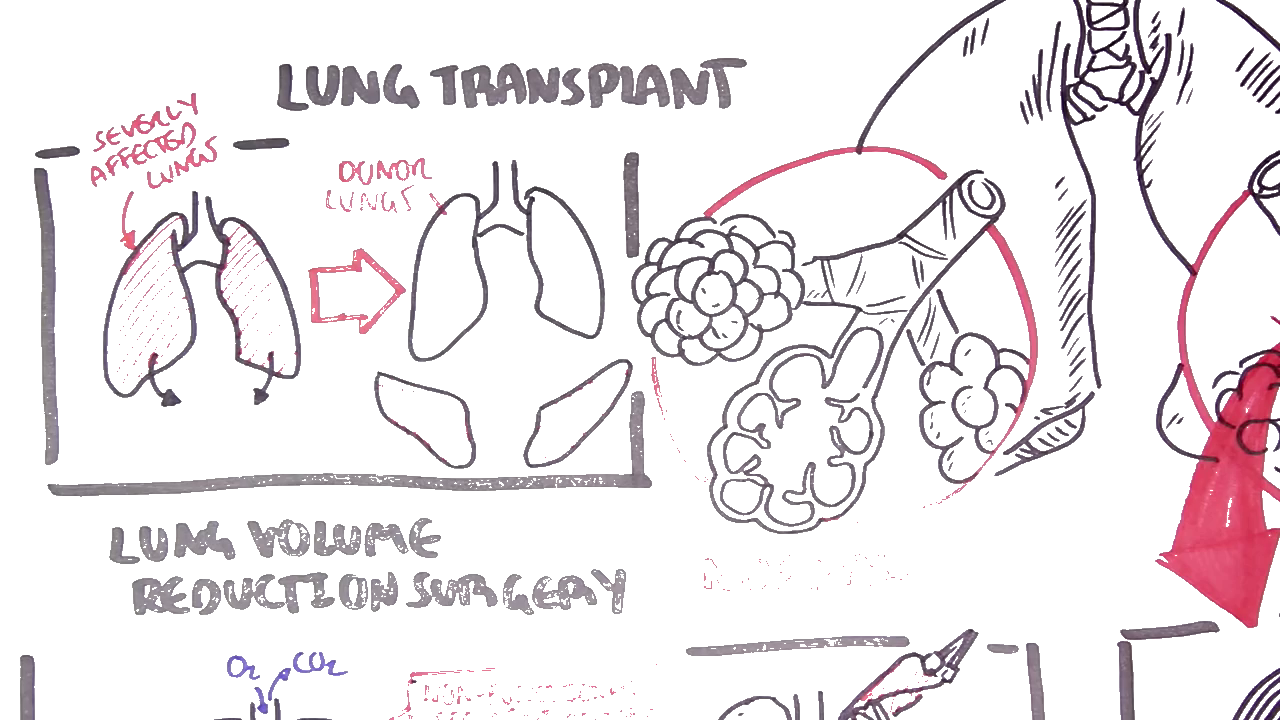 LUNG TRANSPLANT
SEVERLY
AFFECTED
LUNGS
DONOR
LUNGS
LUNG VOLUME
REDUCTION SURGERY
O2 CO2